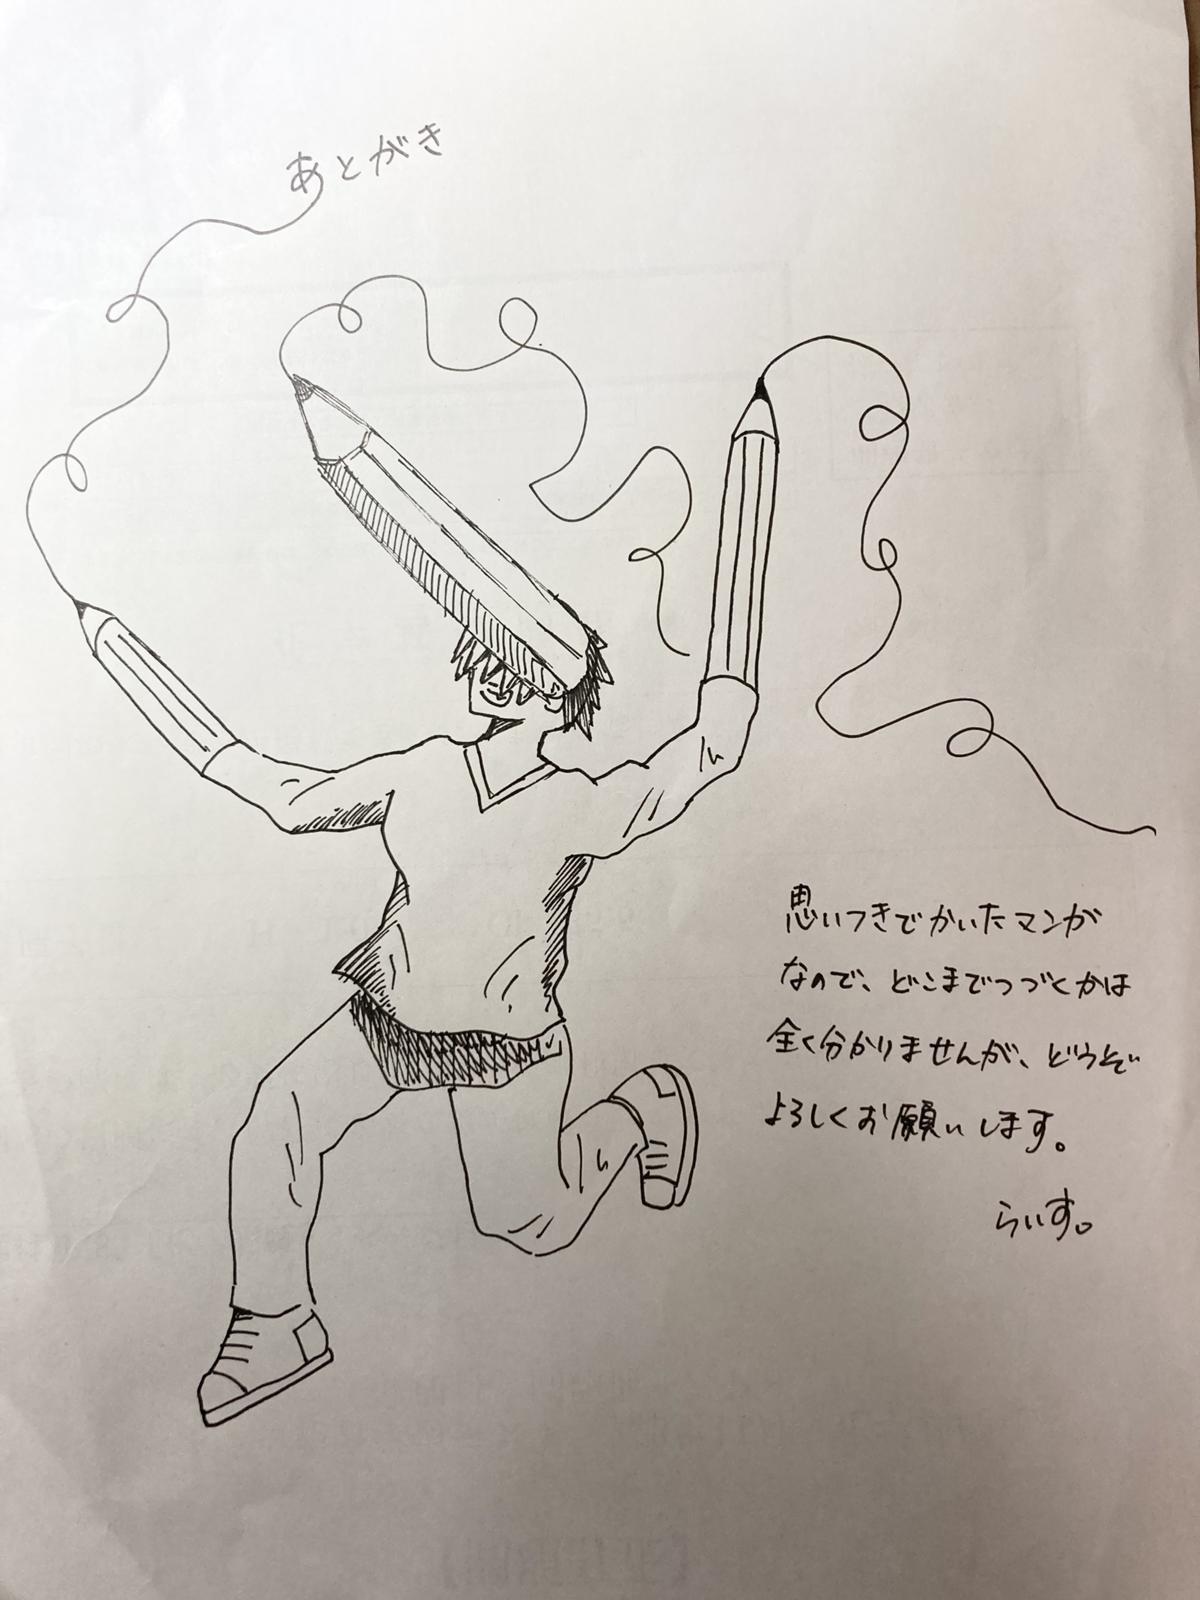 あとがき
思いつきでかいたマンガ
なので、どこまでつづくかは
全く分かりませんが、どうぞ
よろしくお願いします。
らいす。